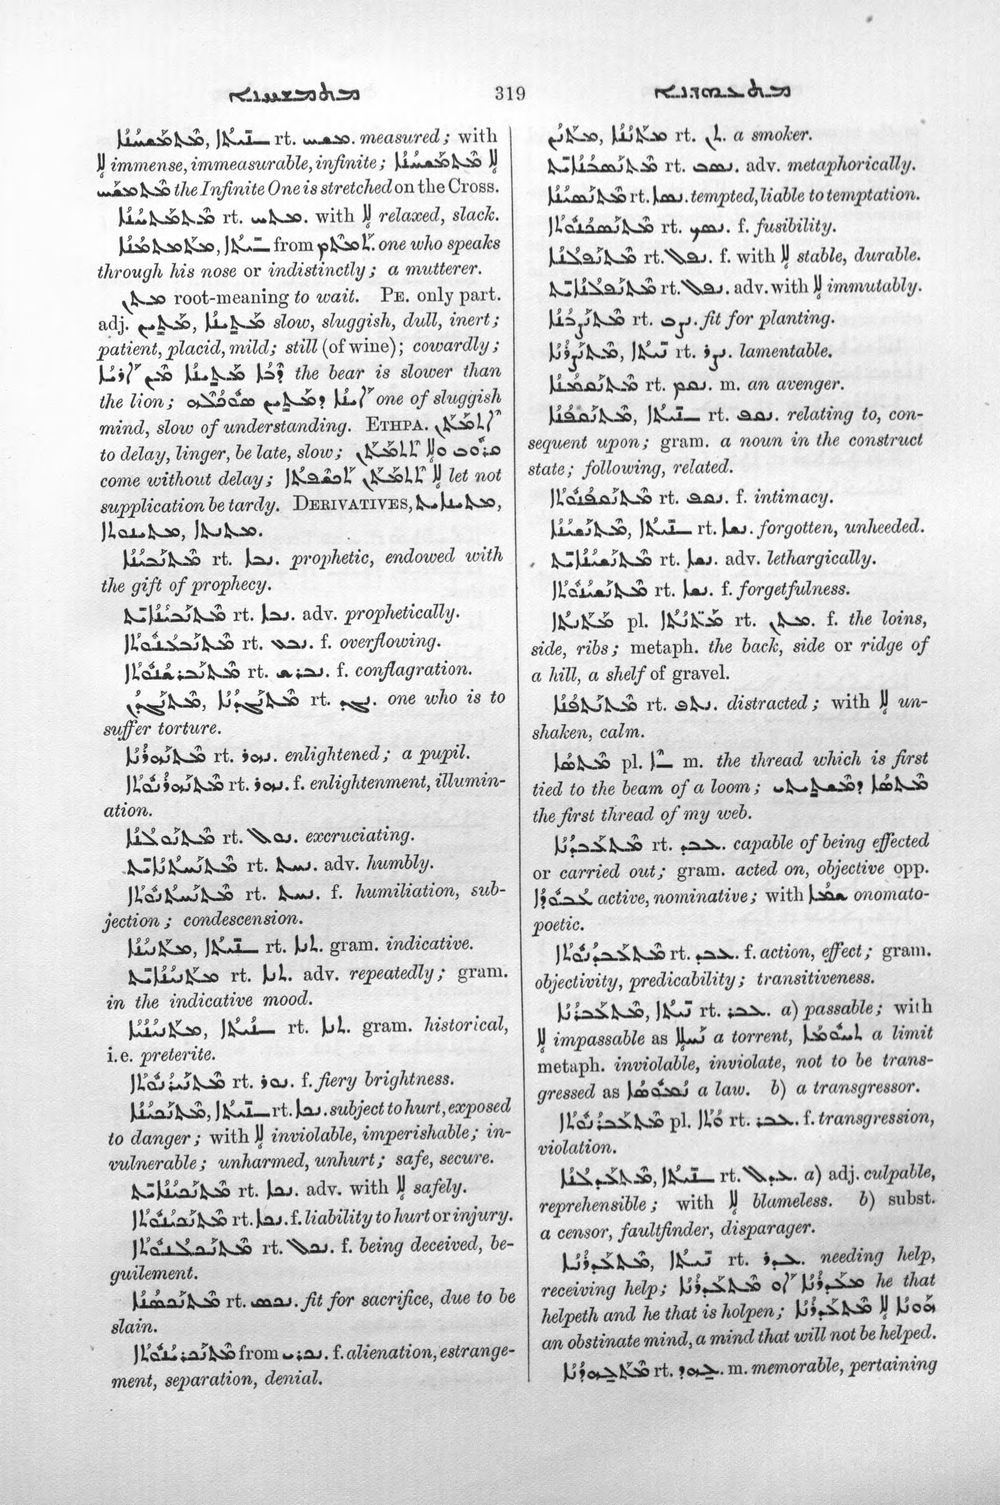 319
ܡܬܡܫܚܢܐ, rt. ܡܫܚ. measured; with
ܠܐ immense, immeasurable, infinite; ܠܐ ܡܬܡܫܚܢܐ
the Infinite One is stretched on the Cross.
ܡܬܡܬܚܢܐ rt. ܡܬܚ. with ܠܐ relaxed, slack.
from one who speaks
through his nose or indistinctly; a mutterer.
ܡܬܢ root-meaning to wait. PE. only part.
adj. ܡܬܝܢ, ܡܬܝܢܐ slow, sluggish, dull, inert;
patient, placid, mild; still (of wine); cowardly;
ܕܒܐ ܡܬܝܢܐ ܡܢ ܐܪܝܐ the bear is slower than
the lion; ܐܝܢܐ ܕܡܬܝܢ ܣܘܟܠܗ one of sluggish
mind, slow of understanding. ETHPA. ܐܬܡܬܢ
to delay, linger, be late, slow; ܩܪܘܒ ܘܠܐ ܬܬܡܬܢ
come without delay; ܠܐ ܬܬܡܬܢ ܒܥܘܬܐ let not
supplication be tardy. DERIVATIVES, ܡܬܝܢܐܝܬ,
ܡܬܝܢܘܬܐ, ܡܬܢܬܐ.
ܡܬܢܒܝܢܐ rt. ܢܒܐ. prophetic, endowed with
the gift of prophecy.
ܡܬܢܒܝܢܐܝܬ rt. ܢܒܐ. adv. prophetically.
ܡܬܢܒܥܢܘܬܐ rt. ܢܒܥ. f. overflowing.
ܡܬܢܒܪܫܢܘܬܐ rt. ܢܒܪܫ. f. conflagration.
ܡܬܢܓܕܢܐ rt. ܢܓܕ. one who is to
suffer torture.
ܡܬܢܗܪܢܐ rt. ܢܗܪ. enlightened; a pupil.
ܡܬܢܗܪܢܘܬܐ rt. ܢܗܪ. f. enlightenment, illumin-
ation.
ܡܬܢܘܠܢܐ rt. ܢܘܠ. excruciating.
ܡܬܢܚܬܢܐܝܬ rt. ܢܚܬ. adv. humbly.
ܡܬܢܚܬܢܘܬܐ rt. ܢܚܬ. f. humiliation, sub-
jection; condescension.
ܡܬܢܝܢܐ, rt. ܬܢܐ. gram. indicative.
ܡܬܢܝܢܐܝܬ rt. ܬܢܐ. adv. repeatedly; gram.
in the indicative mood.
ܡܬܢܝܢܐ, rt. ܬܢܐ. gram. historical,
i.e. preterite.
rt. ܢܘܪ. f. fiery brightness.
ܡܬܢܟܝܢܐ, rt. ܢܟܐ. subject to hurt, exposed
to danger; with ܠܐ inviolable, imperishable; in-
vulnerable; unharmed, unhurt; safe, secure.
ܡܬܢܟܝܢܐܝܬ rt. ܢܟܐ. adv. with ܠܐ safely.
ܡܬܢܟܝܢܘܬܐ rt. ܢܟܐ. f. liability to hurt or injury.
ܡܬܢܟܠܢܘܬܐ rt. ܢܟܠ. f. being deceived, be-
guilement.
ܡܬܢܟܣܢܐ rt. ܢܟܣ. fit for sacrifice, due to be
slain.
ܡܬܢܟܪܝܢܘܬܐ from ܢܟܪܝ. f. alienation, estrange-
ment, separation, denial.
ܡܬܥܗܕܢܐ
ܡܬܢܢ, ܡܬܢܢܐ rt. ܬܢ. a smoker.
ܡܬܢܣܒܢܐܝܬ rt. ܢܣܒ. adv. metaphorically.
ܡܬܢܣܝܢܐ rt. ܢܣܐ. tempted, liable to temptation.
ܡܬܢܣܟܢܘܬܐ rt. ܢܣܟ. f. fusibility.
ܡܬܢܦܠܢܐ rt. ܢܦܠ. f. with ܠܐ stable, durable.
ܡܬܢܦܠܢܐܝܬ rt. ܢܦܠ. adv. with ܠܐ immutably.
ܡܬܢܨܒܢܐ rt. ܢܨܒ. fit for planting.
ܡܬܢܨܪܢܐ, rt. ܢܨܪ. lamentable.
ܡܬܢܩܡܢܐ rt. ܢܩܡ. m. an avenger.
ܡܬܢܩܦܢܐ, rt. ܢܩܦ. relating to, con-
sequent upon; gram. a noun in the construct
state; following, related.
ܡܬܢܩܦܢܘܬܐ rt. ܢܩܦ. f. intimacy.
ܡܬܢܫܝܢܐ, rt. ܢܫܐ. forgotten, unheeded.
ܡܬܢܫܝܢܐܝܬ rt. ܢܫܐ. adv. lethargically.
ܡܬܢܫܝܢܘܬܐ rt. ܢܫܐ. f. forgetfulness.
ܡܬܢܬܐ pl. ܡܬܢܬܐ rt. ܡܬܢ. f. the loins,
side, ribs; metaph. the back, side or ridge of
a hill, a shelf of gravel.
ܡܬܢܬܦܢܐ rt. ܢܬܦ. distracted; with ܠܐ un-
shaken, calm.
ܡܬܣܐ pl. m. the thread which is first
tied to the beam of a loom; ܡܬܣܐ ܕܡܫܬܝܬܝ
the first thread of my web.
ܡܬܥܒܕܢܐ rt. ܥܒܕ. capable of being effected
or carried out; gram. acted on, objective opp.
ܥܒܘܕܐ active, nominative; with ܫܡܐ onomato-
poetic.
ܡܬܥܒܕܢܘܬܐ rt. ܥܒܕ. f. action, effect; gram.
objectivity, predicability; transitiveness.
ܡܬܥܒܪܢܐ, rt. ܥܒܪ. a) passable; with
ܠܐ impassable as ܢܚܠܐ a torrent, ܬܚܘܡܐ a limit
metaph. inviolable, inviolate, not to be trans-
gressed as ܢܡܘܣܐ a law. b) a transgressor.
ܡܬܥܒܪܢܘܬܐ pl. rt. ܥܒܪ. f. transgression,
violation.
ܡܬܥܕܠܢܐ, rt. ܥܕܠ. a) adj. culpable,
reprehensible; with ܠܐ blameless. b) subst.
a censor, faultfinder, disparager.
ܡܬܥܕܪܢܐ, rt. ܥܕܪ. needing help,
receiving help; ܡܥܕܪܢܐ ܐܘ ܡܬܥܕܪܢܐ he that
helpeth and he that is holpen; ܗܘܢܐ ܠܐ ܡܬܥܕܪܢܐ
an obstinate mind, a mind that will not be helped.
ܡܬܥܗܕܢܐ rt. ܥܗܕ. m. memorable, pertaining